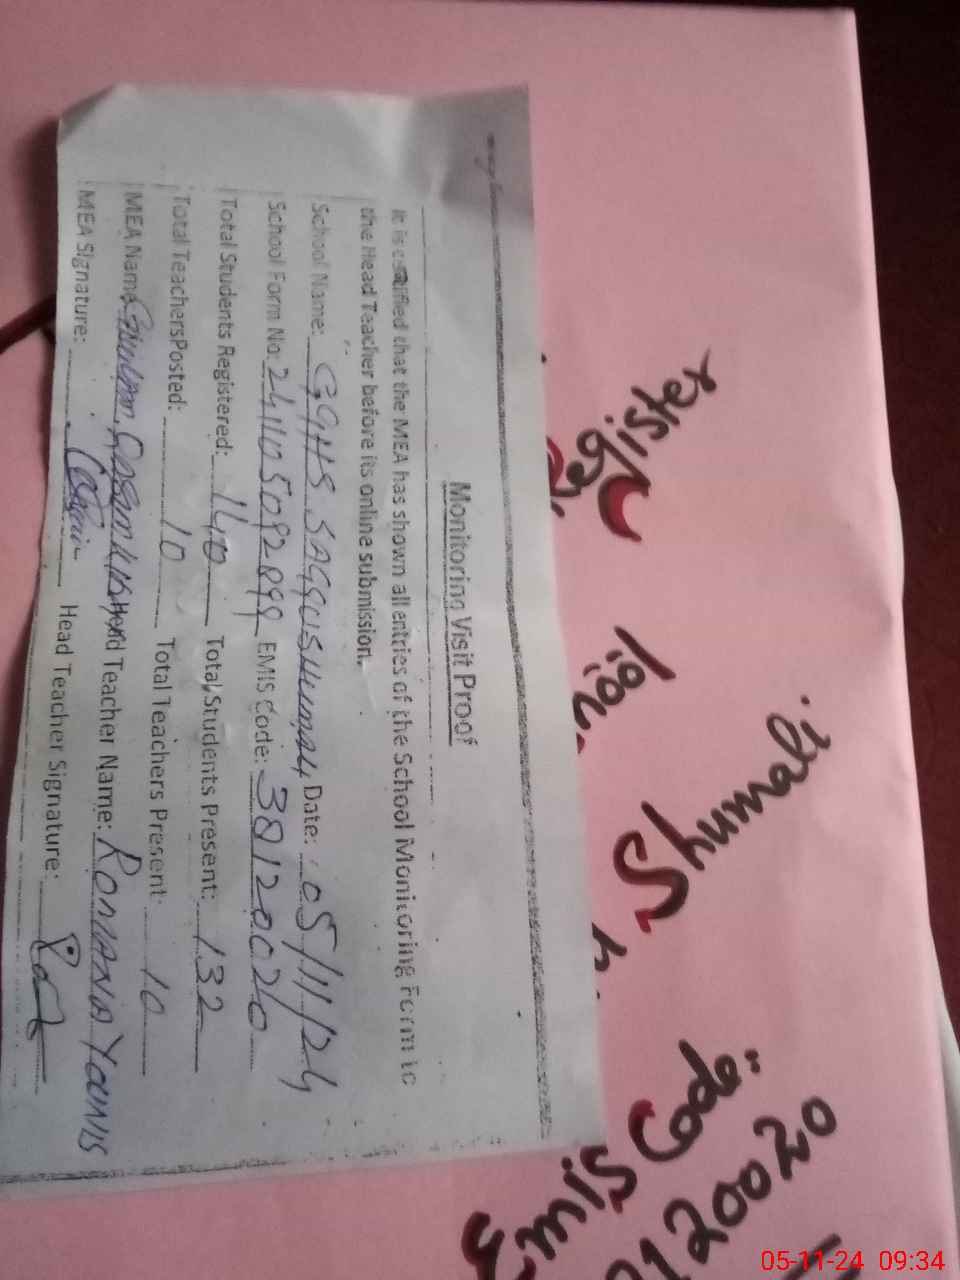 Monitoring Visit Proof
It is certified that the MEA has shown all entries of the School Monitoring Form to
the Head Teacher before its online submission.
School Name: GGHS SAGGU SHUMALI Date: 05/11/24
School Form No: 241105092899 EMIS Code: 38120020
Total Students Registered: 140 Total Students Present: 132
Total Teachers Posted: 10 Total Teachers Present: 10
MEA Name: Head Teacher Name: ROMANA YOUNIS
MEA Signature: Head Teacher Signature:
Register
Shumali
Emis Code:
8120020
05-11-24 09:34